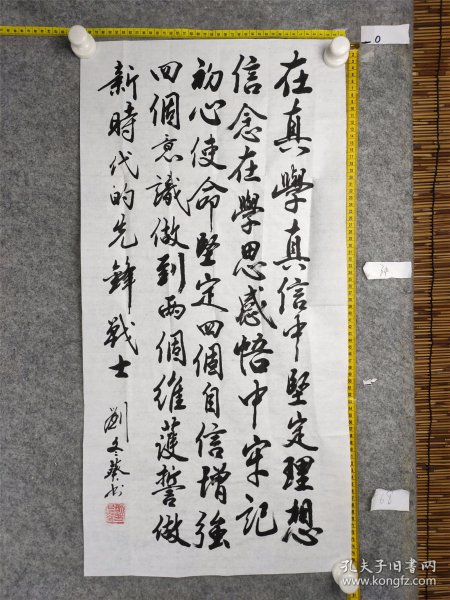 在真學真信中堅定理想
信念在學思感悟中牢記
初心使命堅定四個自信增強
四個意識做到兩個維護誓做
新時代的先鋒戰士
劉冬葵书
0
68
孔夫子旧书网
www.kongfz.com